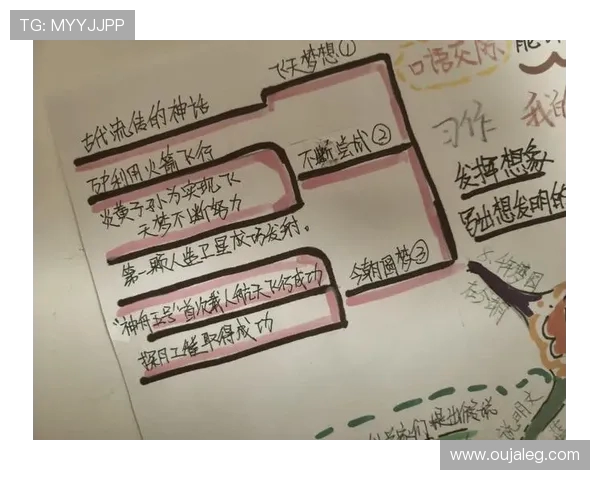 TG: MYYJJPP
飞天梦想①
古代流传的神话
不断尝试②
万户利用火箭飞行
炎黄子孙为实现飞
天梦不断努力
第一颗人造卫星成功发射。
今朝圆梦③
"神舟五号"首次载人航天飞行成功
探月工程取得成功
口语交际
习作
我的
发挥想象
写出想发明的
千年梦圆
在今朝
提出假说
说明文
www.oujaleg.com